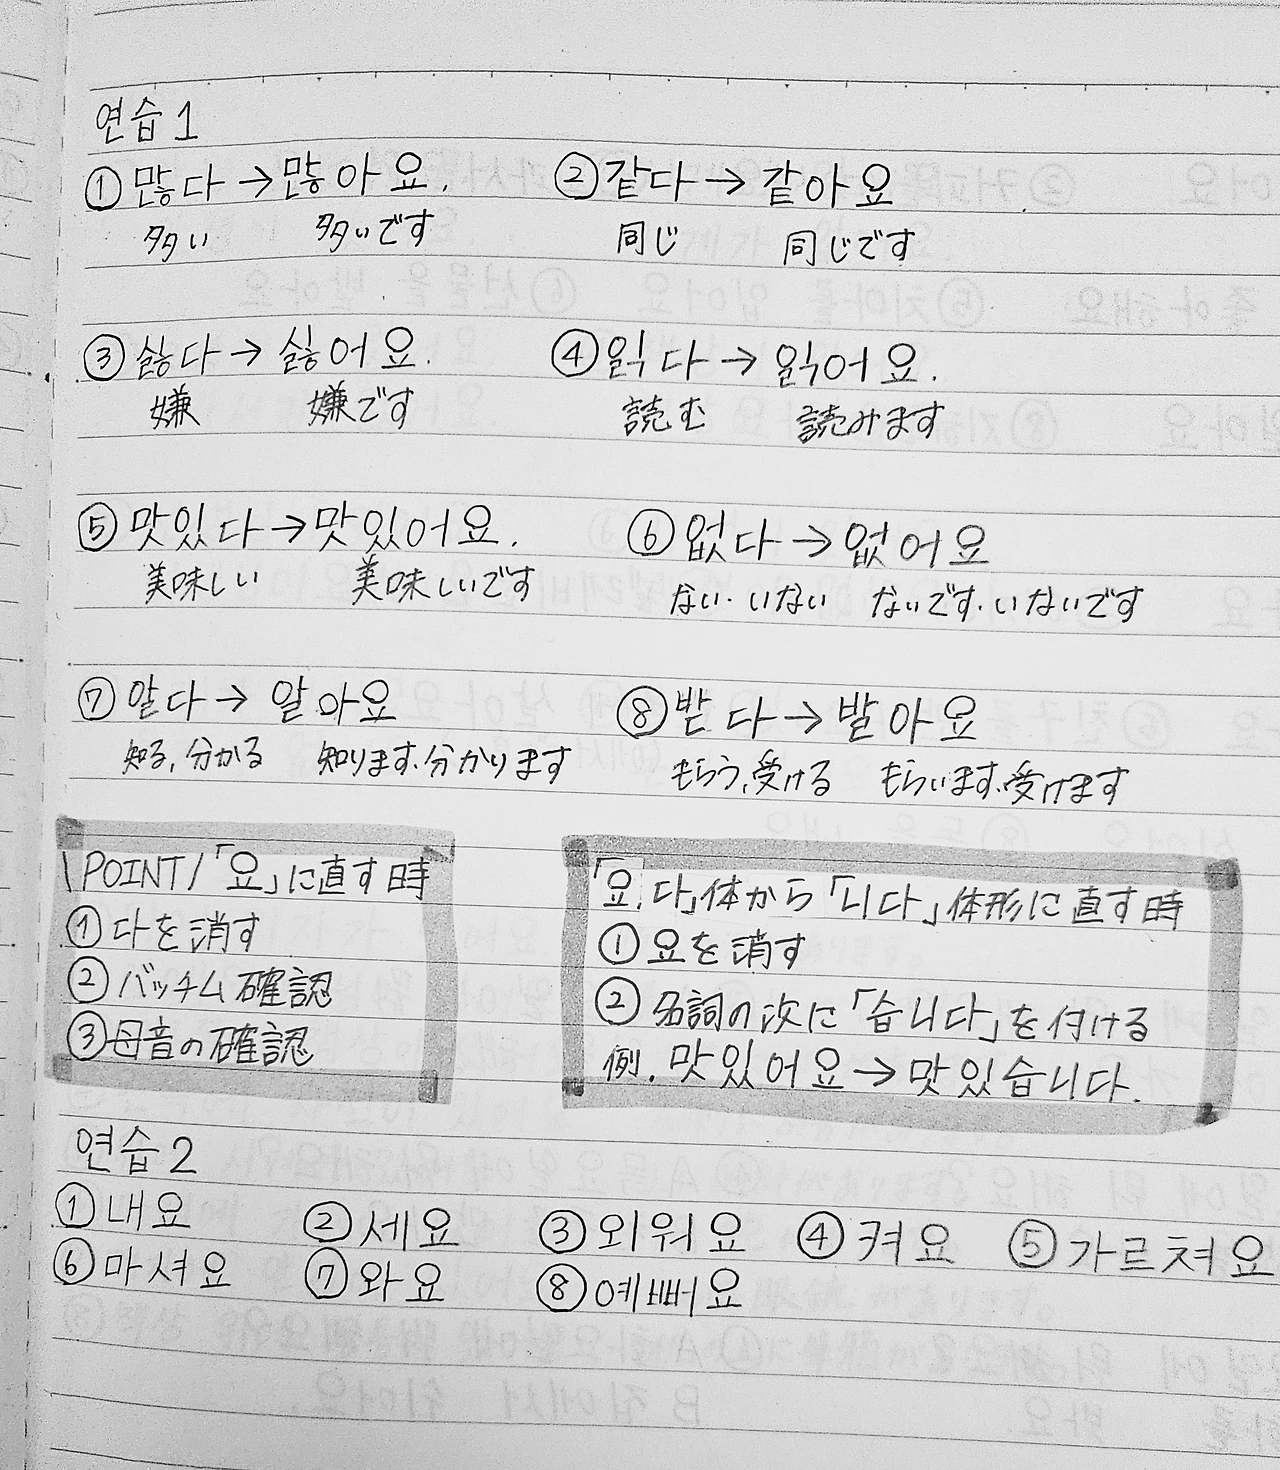 연습 1
① 많다 → 많아요. ② 같다 → 같아요
多い 多いです 同じ 同じです
③ 싫다 → 싫어요. ④ 읽다 → 읽어요.
嫌 嫌です 読む 読みます
⑤ 맛있다 → 맛있어요. ⑥ 없다 → 없어요
美味しい 美味しいです ない・いない ないです・いないです
⑦ 알다 → 알아요 ⑧ 받다 → 발아요
知る,分かる 知ります.分かります もらう,受ける もらいます.受けます
\POINT/「요」に直す時
① 다を消す
② バッチム確認
③ 母音の確認
「요,다」体から「니다」体形に直す時
① 요を消す
② 名詞の次に「습니다」を付ける
例. 맛있어요 → 맛있습니다.
연습 2
① 내요 ② 세요 ③ 외워요 ④ 켜요 ⑤ 가르쳐요
⑥ 마셔요 ⑦ 와요 ⑧ 예뻐요